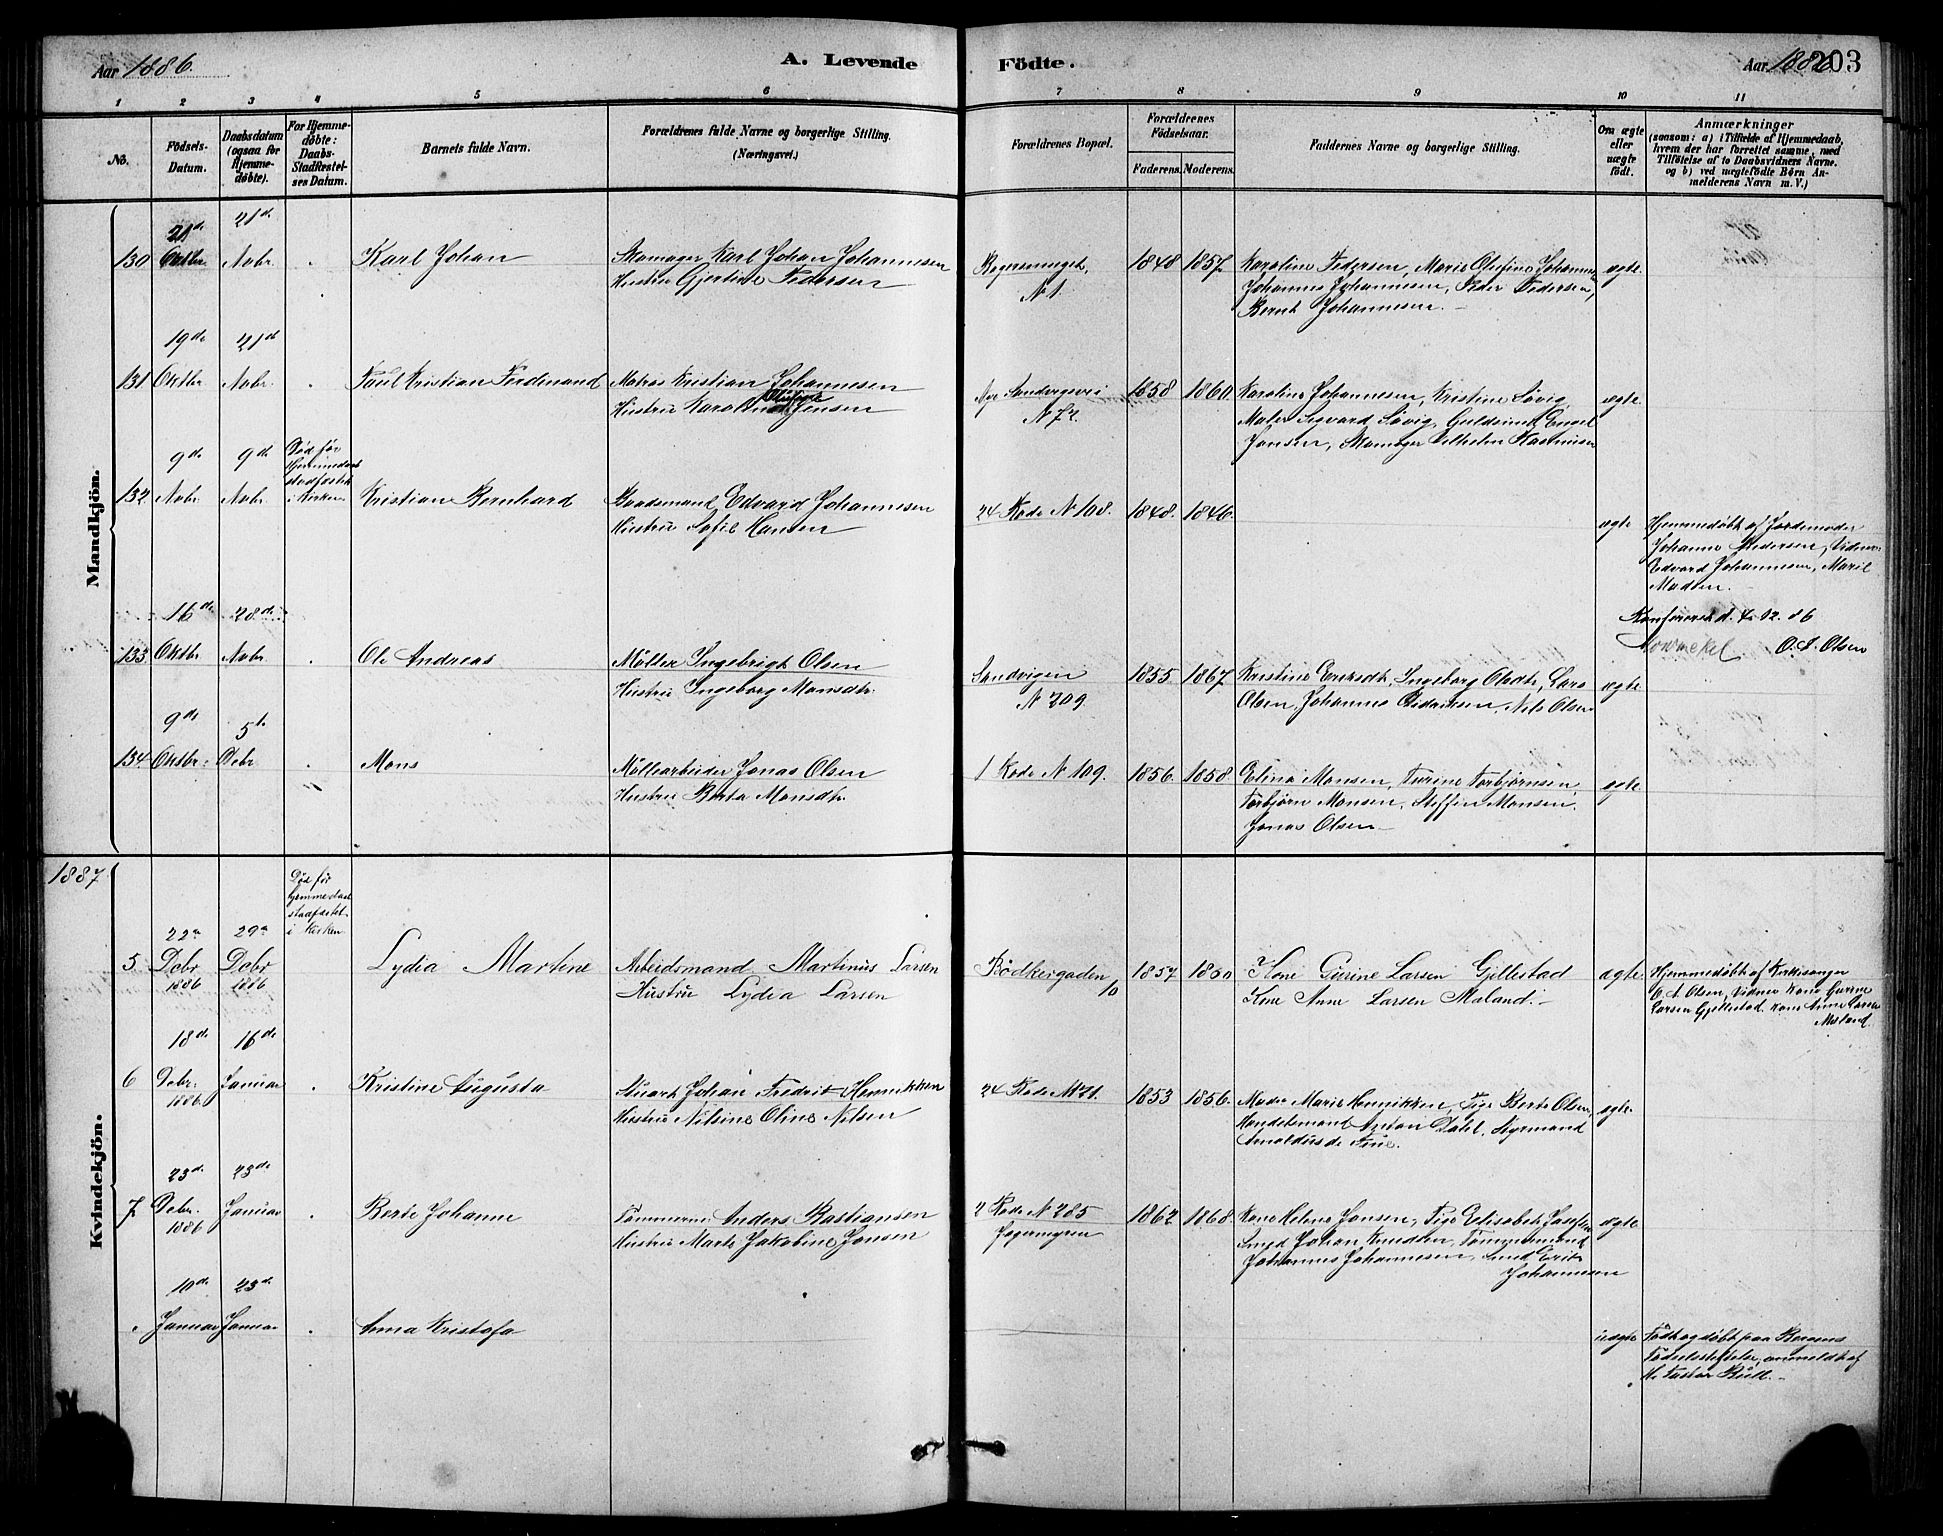 Aar 1886
A. Levende
Födte.
Aar 1886
203
1 2 3 4 5 6 7 8 9 10 11
No.
Födsels-
Datum.
Daabsdatum
(ogsaa for
Hjemme-
døbte).
For Hjemme-
døbte:
Daabs-
Stadfæstel-
ses Datum.
Barnets fulde Navn.
Forældrenes fulde Navne og borgerlige Stilling.
(Næringsvei.)
Forældrenes Bopæl.
Forældrenes
Födselsaar.
Faderens. Moderens.
Faddernes Navne og borgerlige Stilling.
Om ægte
eller
uægte
födt.
Anmærkninger
(saasom: a) i Tilfælde af Hjemmedaab,
hvem der har forrettet samme, med
Tilföielse af to Daabsvidners Navne.
og b) ved uægtefödte Börn An-
melderens Navn m. V.)
Mandkjön.
21de 21de
130 Oktbr Nobr. Karl Johan
Skomager Karl Johan Johannesen
Hustru Gjertine Pedersen
N 1.
1848 1857
Karoline Pedersen, Marie Olufine Johannes
Johannes Johannesen, Peder Pedersen,
Bernt Johannesen.
ægte
19de 21de
131 Oktbr Nobr. Paul Kristian Ferdinand
Matros Kristian Johannesen
Olufine
Hustru Karoline Jensen
Nye Sandvigsvei
N 72.
1858 1860
Karoline Johannesen, Kristine Løvig
Maler Sigvard Løvig, Guldsmed Engel
Jansen, Skomager Vilhelm Rasmusen
ægte
9de 9de
Død før
Hjemmedaab
stadfæstet
i Kirken
132 Nobr. Nobr. Kristian Bernhard
Baadsmand Edvard Johannesen
Hustru Sofie Hansen
24 Rode N 108. 1848. 1846.
ægte
Hjemmedøbt af Jordemoder
Johanne Andersen, Vidner
Edvard Johannesen, Marie
Madsen.
Konfereret d. 4/12. 86
O. A. Olsen
16de 28de
133 Oktbr Nobr. Ole Andreas
Møller Ingebrigt Olsen
Hustru Ingeborg Monsdtr.
Sandvigen
N 209
1855 1867
Kristine Eriksdt, Ingeborg Olsdtr, Lars
Olsen, Johannes Didriksen, Nils Olsen
ægte
9de 5te
134 Oktbr. Debr Mons
Møllearbeider Jonas Olsen
Hustru Berta Monsdtr.
1 Rode N 109. 1856. 1858.
Elina Monsen, Turine Torbjørnsen,
Torbjørn Monsen, Steffen Monsen.
Jonas Olsen
ægte
1887
Kvindekjön.
Død før
hjemmedaab
stadfæstet
i Kirken
22de 29de
5 Debr Debr Lydia Martine
1886 1886
Arbeidsmand Martinus Larsen
Hustru Lydia Larsen
Bødkergaden
10
1857 1850
Kone Gurine Larsen Gjellestad
Kone Anne Larsen Maland.
ægte
Hjemmedøbt af Kirkesanger
O. A. Olsen, Vidner Kone Gurine
Larsen Gjellestad. Kone Anne Larsen
Maland.
18de 16de
6 Debr. Januar Kristine Augusta
1886.
Stuart Johan Fredrik Hennikken
Hustru Nilsine Oline Nilsen
24 Rode N 71. 1853 1856.
Madm Marie Hennikken, Pige Berte Olsen,
Handelsmand Anton Dahl, Styrmand
Arnoldus de Fine.
ægte
23de 23de
7 Debr. Januar Berte Johanne
1886
Tømmerm. Anders Bastiansen
Hustru Marte Jakobine Jensen
2 Rode N 285
1862 1868.
Kone Helene Jensen, Pige Elisabet Josefsen
Smed Johan Knudsen, Tømmermand
Johannes Johannesen, Smed Erik
Johannesen
ægte
10de 23de
Januar Januar Anna Kristofa
uægte
Født og døbt paa Bergens
Fødselsstiftelse, anmeldt af
H. Pastor Bull.